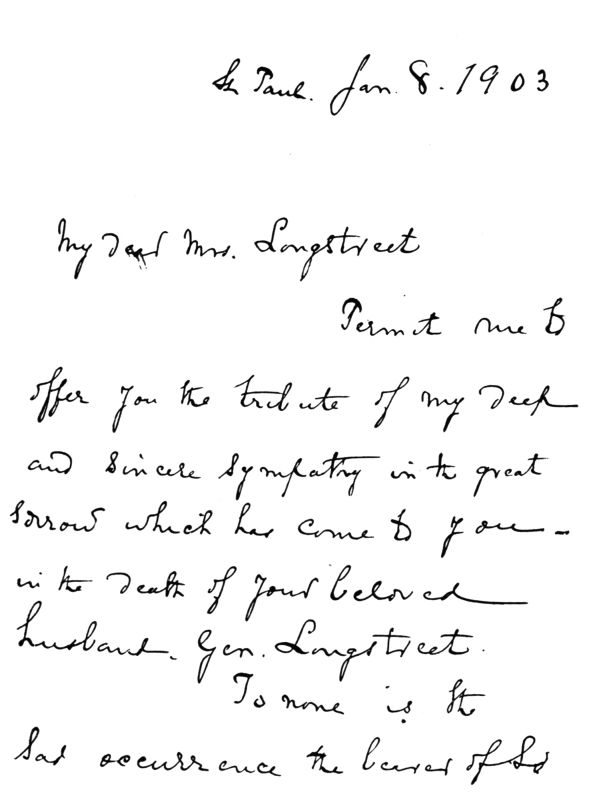 St Paul. Jan. 8. 1903
My dear Mrs. Longstreet
Permit me to
offer you the tribute of my deep
and sincere sympathy in the great
sorrow which has come to you -
in the death of your beloved
husband. Gen. Longstreet.
To none is the
sad occurrence the bearer of so